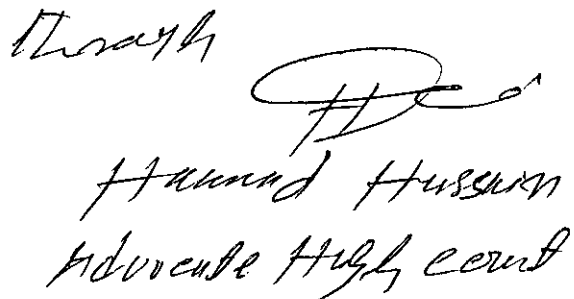 Through
Hammad Hussain
Advocate High Court